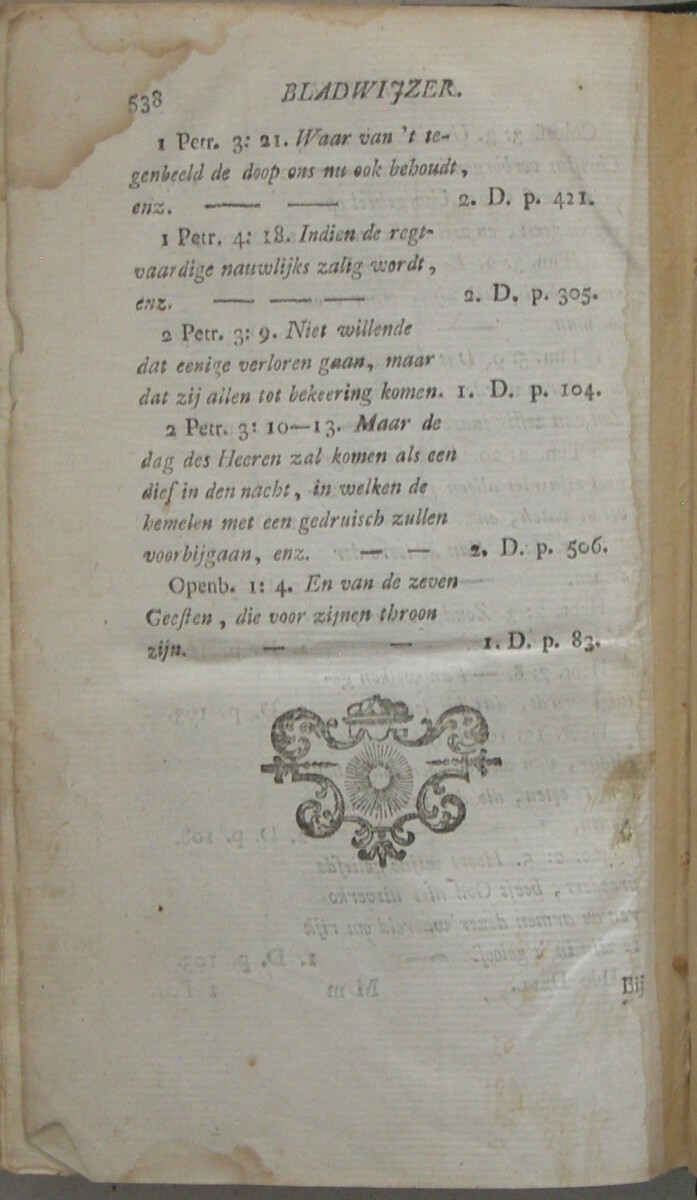 538 BLADWIJZER.
1 Petr. 3: 21. Waar van 't te-
genbeeld de doop ons nu ook behoudt,
enz. — — 2. D. p. 421.
1 Petr. 4: 18. Indien de regt-
vaardige nauwlijks zalig wordt,
enz. — — — 2. D. p. 305.
2 Petr. 3: 9. Niet willende
dat eenige verloren gaan, maar
dat zij allen tot bekeering komen. 1. D. p. 104.
2 Petr. 3: 10—13. Maar de
dag des Heeren zal komen als een
dief in den nacht, in welken de
hemelen met een gedruisch zullen
voorbijgaan, enz. — — 2. D. p. 506.
Openb. 1: 4. En van de zeven
Geeſten, die voor zijnen throon
zijn. — — 1. D. p. 83.
Bij